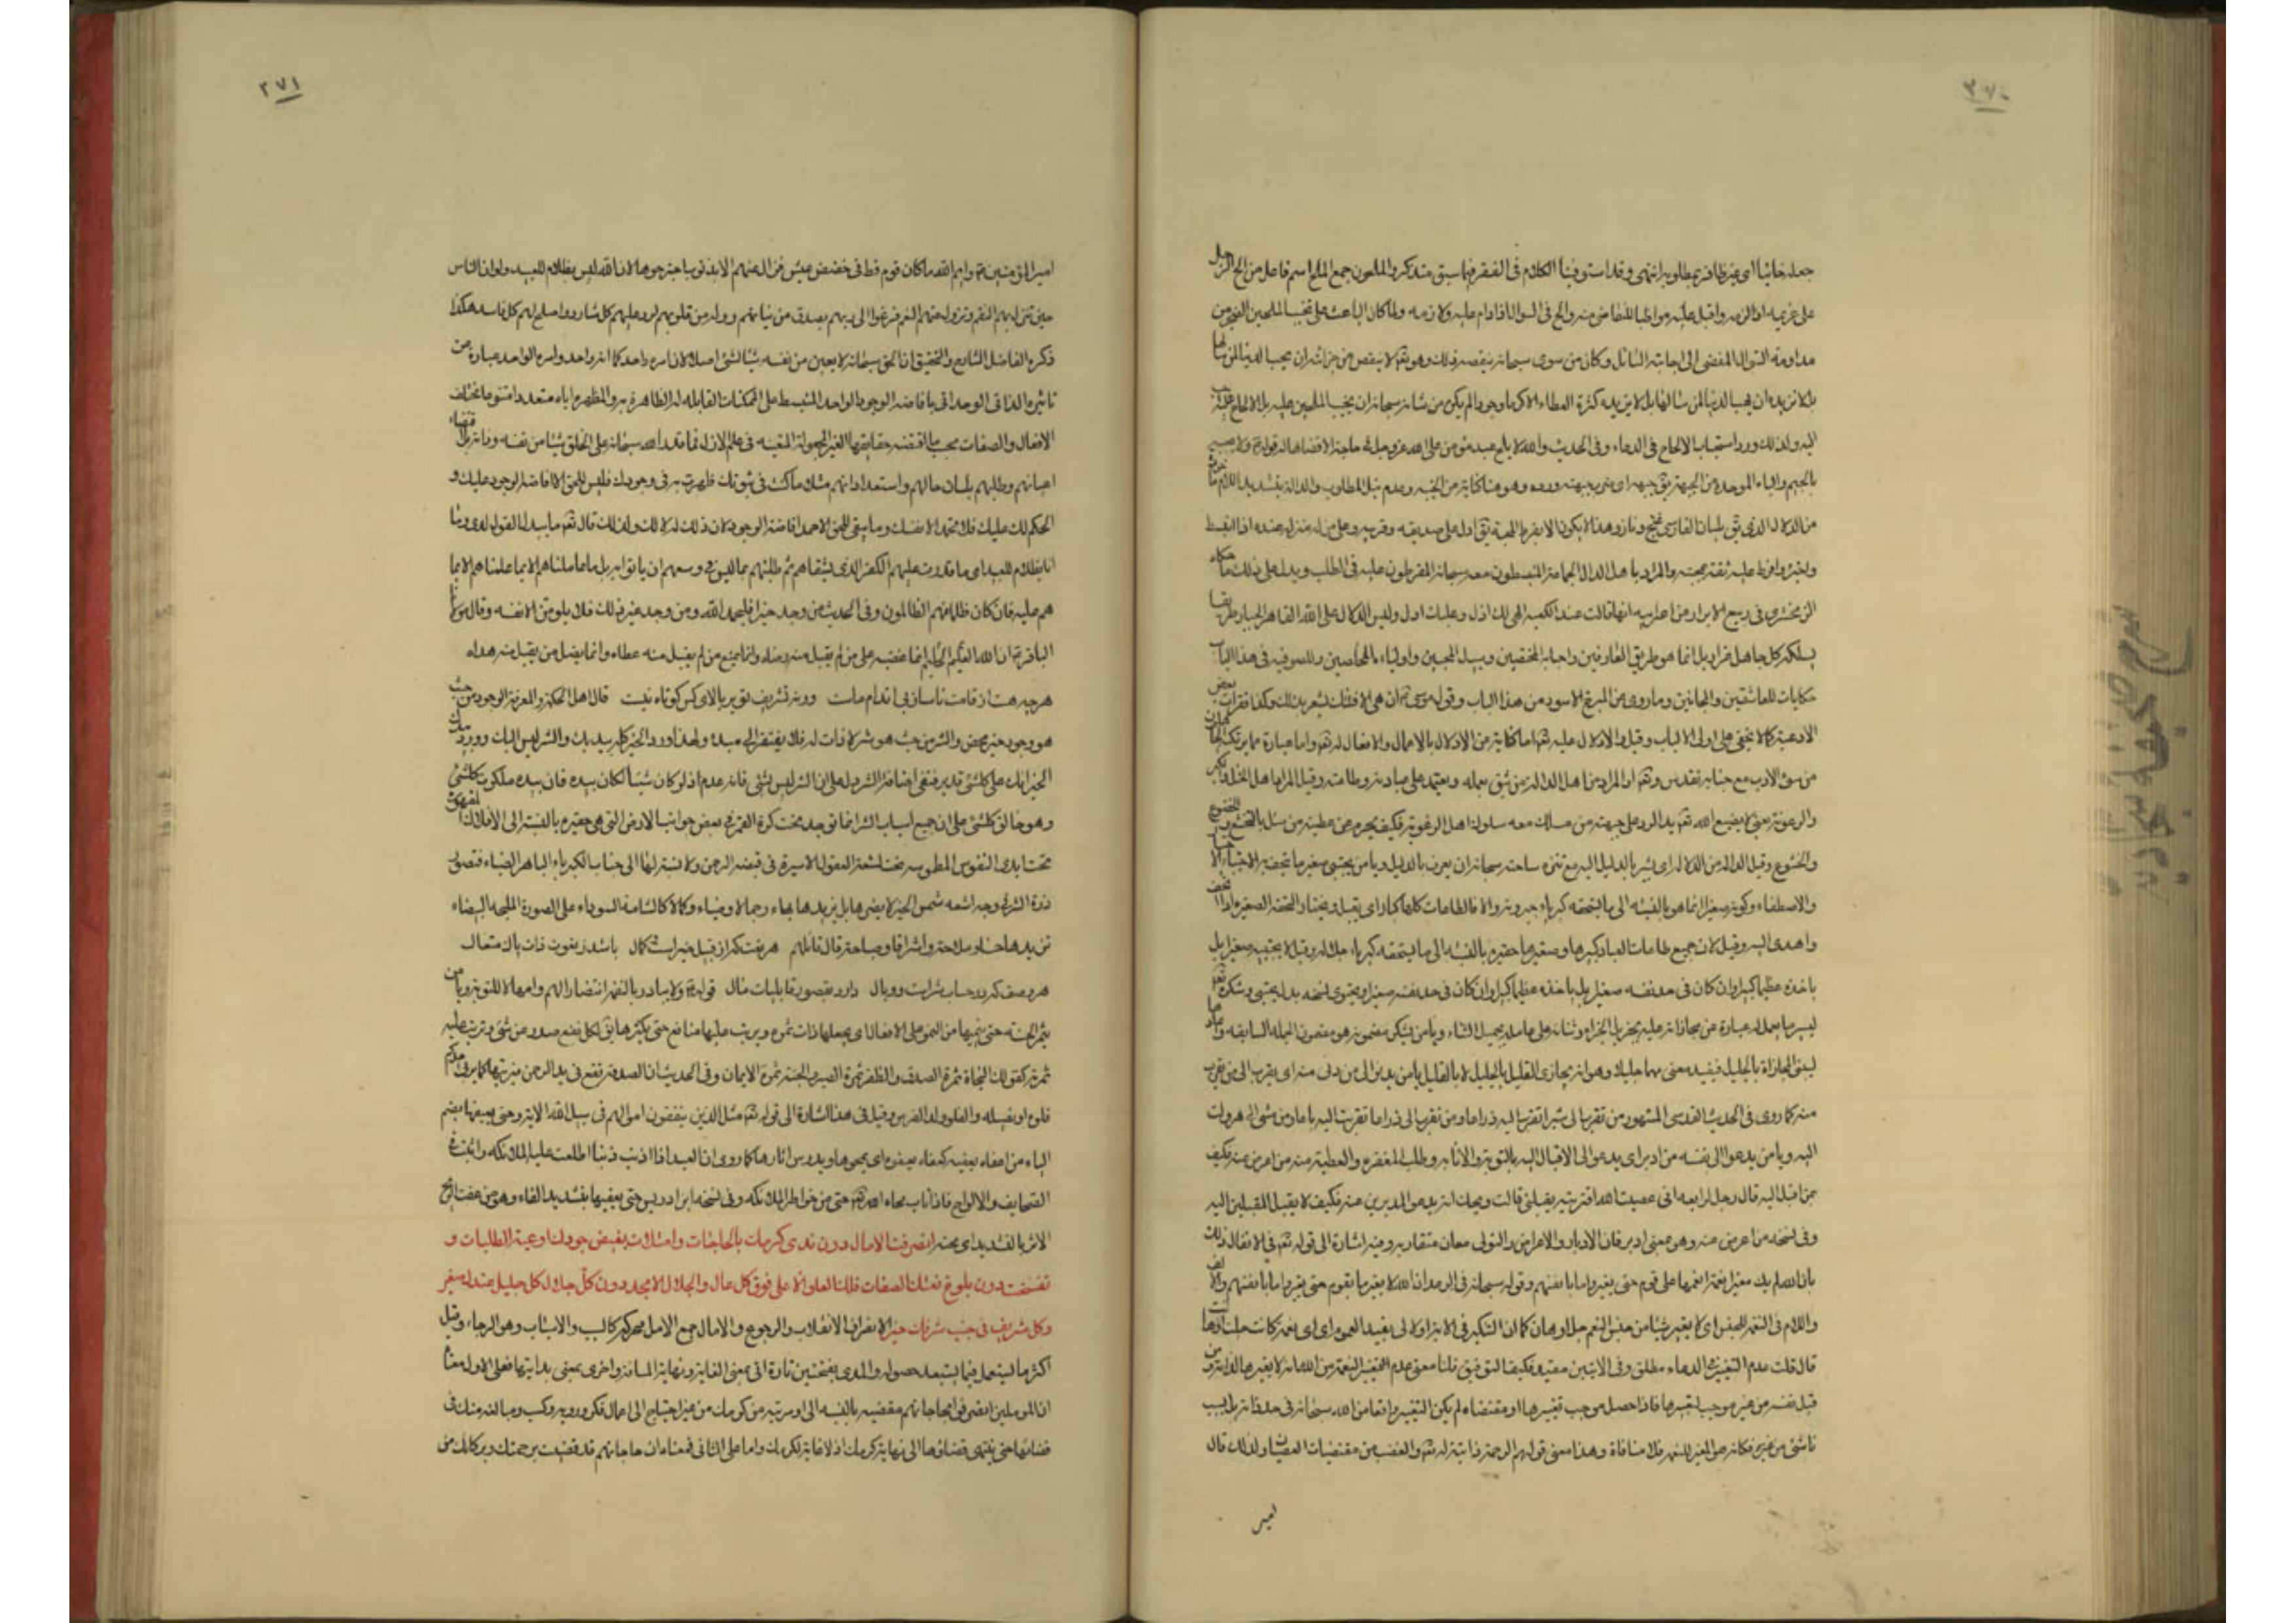 ٣٧٠
جعله خائبا اى غير ظافر بمطلوبه انتهى وقد استوفينا الكلام فى الفقر فيما سبق فتذكر والملحون جمع الملح اسم فاعل من الح الرجل
على غريمه اذا لزمه واقبل عليه مواظبا للتقاضى منه والح فى السؤال اذا دام عليه ولازمه ولما كان الباعث على تخييب الملحين
مداومة السؤال المفضى الى اجابة السائل وكان من سوى سبحانه ينقصه ذلك وهو تعالى لا ينقص من خزائنه ان يهب الدنيا لمن سألها
بل لا يزيده كثرة العطاء الا كرما وجودا لم يكن من شانه سبحانه ان يخيب الملحين عليه
اليه ولذلك ورد استحباب الالحاح فى الدعاء وفى الحديث والله لا يلح عبد مؤمن على الله عز وجل فى حاجته الا قضاها له
بالجيم والباء الموحدة من الجبهة يق جبهه اى ضرب جبهته ورده وهو هنا كناية عن الخيبة وعدم نيل المطلوب والدالة بتشديد اللام
من الدلال الذى يق بلسان الفارسى غنج وناز وهذا لا يكون الا بفرط المحبة يق ادل على صديقه وقريبه وعلى من له منزلة عنده اذا انبسط
واجترء وافرط عليه ثقة بمحبته والمراد باهل الدالة الجماعة المنبسطون معه سبحانه المفرطون عليه فى الطلب ويدل على ذلك ما حكاه
الزمخشرى فى ربيع الابرار من اعرابيه انها قالت عند الكعبه الهى لك اذل وعليك ادل وليس الدلال على الله القاهر الجبار طريقا
يسلكه كل جاهل غرا بل انما هو طريق العارفين واحباء المخفين وسبيل المحبين واولياء المخلصين وللصوفيه فى هذا الباب
حكايات للعاشقين والمجانين وما روى عن البرخ الاسود من هذا الباب وقول موسى ان هى الا فتنتك يشعر بذلك وكذا فقرات بعض
الادعية كما لا يخفى على اولى الالباب وقيل والادلال عليه تعالى اما كناية عن الادلال بالاعمال والافعال له تعالى واما عبارة عما يرتكبه
من سوء الادب مع جنابه تقدس وتعالى او المراد من اهل الدالة من يثق بعمله ويعتمد على عبادته وطاعته وقيل المراد اهل الخيلاء والكبر
والرعونة يعنى لا يضيع الله تعالى يد الرد على جبهة من سلك معه سلوك اهل الرعونة فكيف يحرم من عطيته من سئل بالتخشع والخضوع
والخشوع وقيل الدالة من الدلالة اى يشير بالدليل اليه مع تنزه ساحته سبحانه ان يعرف بالدليل ويا من يجتبى صغير ما يتحف به الاجتباء
والاصطفاء وكونه صغيرا انما هو بالنسبه الى ما يستحقه كبرياء جبروته والا فالطاعات كلها كبار اى يقبل ويختار التحفة الصغيره اذا اتحف
واهدى اليه وقيل لان جميع طاعات العباد كبيرها وصغيرها حقيره بالنسبه الى ما يستحقه كبرياء جلاله وقيل لا يجتبيه صغيرا بل
ياخذه عظيما كبيرا وان كان فى حد نفسه صغيرا
يسير ما يعمل له عبارة عن مجازاته عليه بجزيل الجزاء وثنائه على عامله بجميل الثناء ويا من يشكر مضمونه هو مضمون الجمله السابقه
لبنى المجازاة بالجليل فيفيد معنى مهما جليلا وهو انه يجازى القليل بالجليل لا بالقليل يا من يدنو الى من دنى منه اى يقرب الى من تقرب
منه كما روى فى الحديث القدسى المشهور من تقرب الى شبرا تقربت اليه ذراعا ومن تقرب الى ذراعا تقربت اليه باعا ومن مشى الى هرولت
اليه ويا من يدعو الى نفسه من ادبر اى يدعو الى الاقبال اليه بالتوبة والانابه وطلب المغفره والعطية منه من اعرض عنه فكيف
بمن اقبل اليه قال رجل لرابعه انى عصيت الله افترينه يقبلنى قالت ويحك انه يدعو المدبرين عنه فكيف لا يقبل المقبلين اليه
وفى نسخه من اعرض عنه وهو بمعنى ادبر فان الادبار والاعراض والتولى معان متقاربه وفيه اشارة الى قوله تعالى فى الانفال ذلك
بان الله لم يك مغيرا نعمة انعمها على قوم حتى يغيروا ما بانفسهم وقوله سبحانه فى الرعد ان الله لا يغير ما بقوم حتى يغيروا ما بانفسهم والالف
واللام فى النعم للجنس اى لا يغير شيئا من جنس النعم جل او هان كما ان التنكير فى الايتين اولا لى يفيد العموم اى اى نعمة كانت
قال قلت عدم التغيير فى الدعاء مطلق وفى الايتين مقيد فكيف التوفيق قلنا معنى عدم التغيير النعم من الله انه لا يغيرها لذاته ومن
قبل نفسه من غير موجب لتغييرها فاذا حصل موجب تغييرها او مقتضاه لم يكن التغيير واقعا من الله سبحانه فى حد ذاته بل بسبب
ناشئ من غيره فكانه هو المغير للنعم فلا منافاة وهذا معنى قولهم الرحمة ذاتية له تعالى والغضب من مقتضيات العصيان ولذلك قال
امير
٣٧١
امير المؤمنين وايم الله ما كان قوم قط فى خفض عيش فزال عنهم الا بذنوب اجترحوها لان الله ليس بظلام للعبيد ولو ان الناس
حين تنزل بهم النقم وتزول عنهم النعم فزعوا الى ربهم بصدق من نياتهم ووله من قلوبهم لرد عليهم كل شارد واصلح لهم كل فاسد هكذا
ذكره الفاضل الشارح والتحقيق ان الحق سبحانه لا يعين من نفسه شيئا لشئ اصلا لان امره واحد كما انه واحد وامره الواحد عبارة عن
تاثيره الذاتى الوحدانى بافاضة الوجود الواحد المنبسط على الممكنات القابله له الظاهرة به والمظهره اياه متعددا متنوعا مختلف
الافعال والصفات بحسب ما اقتضته حقايقها الغير المجعولة المتعينه فى علم الازل فما قدر الله سبحانه على الخلق شيئا من نفسه وذاته بل
اعيانهم وطلبهم بلسان حالهم واستعداداتهم مثلك ما كنت فى ثبوتك ظهرت به فى وجودك فليس للحق الا افاضة الوجود عليك و
الحكم لك عليك فلا تحمد الا نفسك وما يبقى للحق الا حمد افاضة الوجود لان ذلك له لا لك ولذلك قال تعالى ما يبدل القول لدى وما
انا بظلام للعبيد اى ما قدرت عليهم الكفر الذى يشقيهم ثم طلبتهم بما ليس فى وسعهم ان ياتوا به بل ما عاملناهم الا بما علمناهم الا بما
هم عليه فان كان ظلما فهم الظالمون وفى الحديث من وجد خيرا فليحمد الله ومن وجد غير ذلك فلا يلومن الا نفسه وقال
الباقر ان الله الحليم العليم انما غضبه على من لم يقبل منه رضاه وانما يمنع من لم يقبل منه عطاه وانما يضل من يقبل منه هداه
هر چه هست از قامت ناساز بى اندام ماست ورنه تشريف تو بر بالاى كس كوتاه نيست قال اهل الحكمة والمعرفة الوجود من حيث
هو وجود خير محض والشر من حيث هو شر لا ذات له فلا يفتقر الى مبدء ولهذا ورد الخير كله بيديك والشر ليس اليك وورد بيدك
الخير انك على كل شئ قدير فنفى اضافة الشر دل على ان الشر ليس بشئ فانه عدم اذ لو كان شيئا لكان بيده فان بيده ملكوت كل شئ
وهو خالق كل شئ على ان جميع اسباب الشر انما توجد تحت كرة القمر فى بعض جوانب الارض التى هى حقيره بالنسبة الى الافلاك المقهورة
تحت ايدى النفوس المطموسه تحت اشعة العقول الاسيرة فى قبضة الرحمن ولا نسبة لها الى جناب الكبرياء الباهر الضياء فتصور
ذرة الشر فى وجه اشعه شمس الخير لا يضرها بل يزيدها بهاء وجمالا وضياء وكمالا كالشامة السوداء على الصورة المليحه البيضاء
تزيدها حسنا وملاحة واشراقا وصباحة قال قائلهم هر نعت كه از قبيل خير است وكمال باشد ز نعوت ذات پاك متعال
هر وصف كه در حساب شر است و وبال دارد بقصور قابليات مآل قوله ولا يبادر بالنقمة انتظارا لهم وامهالا للتوبة ويا من
يثمر الحسنة حتى ينميها من النمو على الافعال اى يجعلها ذات ثمره ويرتب عليها منافع حتى يكثرها يق لكل نفع صدر عن شئ وترتب عليه
ثمرته كقولك النجاة ثمرة الصدق والظفر ثمرة الصبر والجنة ثمرة الايمان وفى الحديث ان الصدقة تقع فى يد الرحمن فيربيها كما يربى احدكم
فلوه او فصيله والفلو ولد الفرس وقيل فى هذا اشارة الى قوله تعالى مثل الذين ينفقون اموالهم فى سبيل الله الاية وحتى يعفيها بضم
الياء من اعفاه يعفيه كعفاه يعفوه اى يمحوها ويدرس اثارها كما روى ان العبد اذا اذنب ذنبا اطلعت عليه الملائكه واثبت فى
الصحايف والالواح فاذا تاب محاه الله تعالى حتى من خواطر الملائكه وفى نسخه ابن ادريس حتى يعفيها بتشديد الفاء وهو من عفت الريح
الاثر بالتشديد اى محته انصرفت الامال دون مدى كرمك بالحاجات وامتلات بفيض جودك اوعية الطلبات و
تفسخت دون بلوغ نعتك الصفات فلك العلو الاعلى فوق كل عال والجلال الامجد دون كل جلال كل جليل عندك صغير
وكل شريف فى جنب شرفك حقير الانصراف الانقلاب والرجوع والامال جمع الامل محركه كالسبب والاسباب وهو الرجاء وقيل
اكثر ما يستعمل فيما يستبعد حصوله والمدى بفتحتين تارة اتى بمعنى الغاية ونهاية المسافة واخرى بمعنى بدايتها فعلى الاول معناه
ان المؤملين انصرفوا بحاجاتهم مقضيه بالنسبه الى اول مرتبه من كرمك من غير احتياج الى اعمال فكر وروية وكسب ومبالغه منك فى
قضائها حتى ينتهى قضاؤها الى نهاية كرمك اذ لا غاية لكرمك واما على الثانى فمعناه ان حاجاتهم قد قضيت برحمتك وبركاتك من